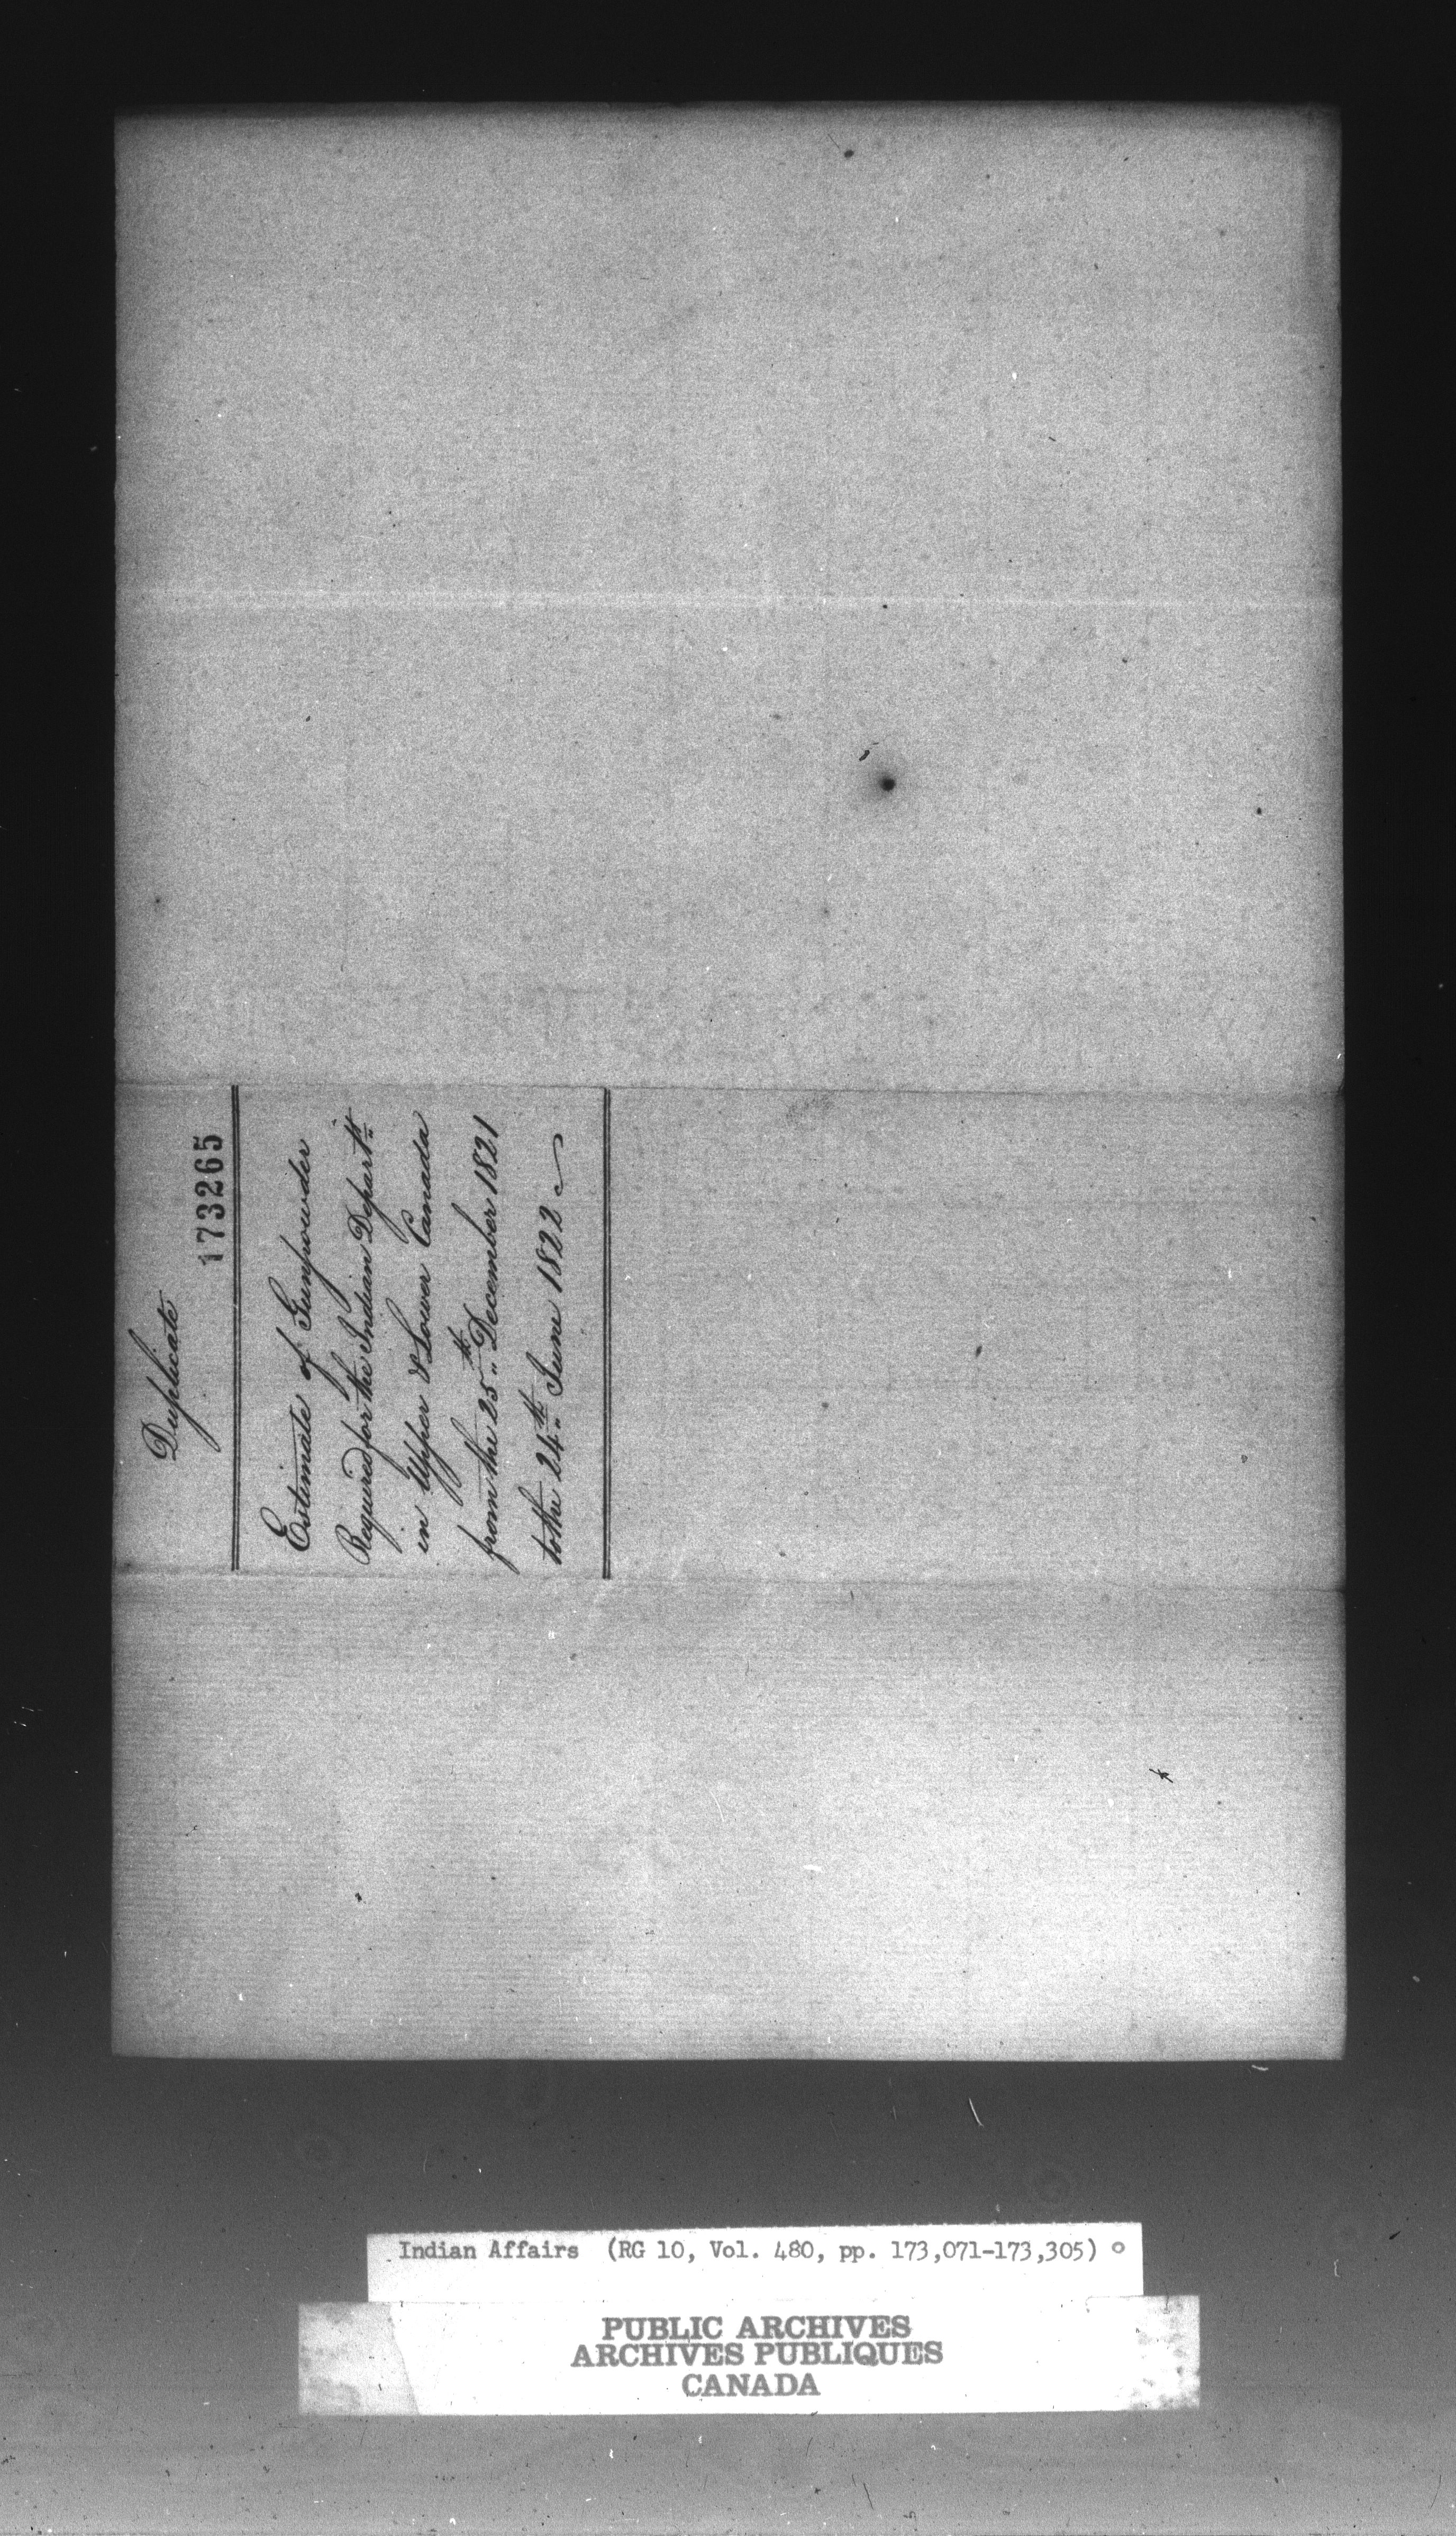 Duplicate
173265
Estimate of Gunpowder
Required for the Indian Departt
in Upper & Lower Canada
from the 25th December 1821
to the 24th June 1822
Indian Affairs (RG 10, Vol. 480, pp. 173,071-173,305)
PUBLIC ARCHIVES
ARCHIVES PUBLIQUES
CANADA